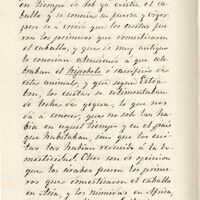 en tiempo de Job ya existia el ca-
ballo y se conocia su fuerza y vigor
pero se à creido que los Escitas fue-
ron los primeros que domesticaron
el caballo, y que de muy antiguo
le conocian atendiendo a que cele-
braban el Hipobolo ó sacrificio de
estos animales, y que segun Estra-
bon, los escitas se alimentaban
de leche de yegua, lo que nos
da á conocer, que no solo las ha-
bia en aquel tiempo y en el pais
que habitaban, sino que los esci-
tas las habian reducido á la do-
mesticidad. Otros son de opinion
que los árabes fueron los prime-
ros que domesticaron el caballo
en Asia, y los numidas en Africa,